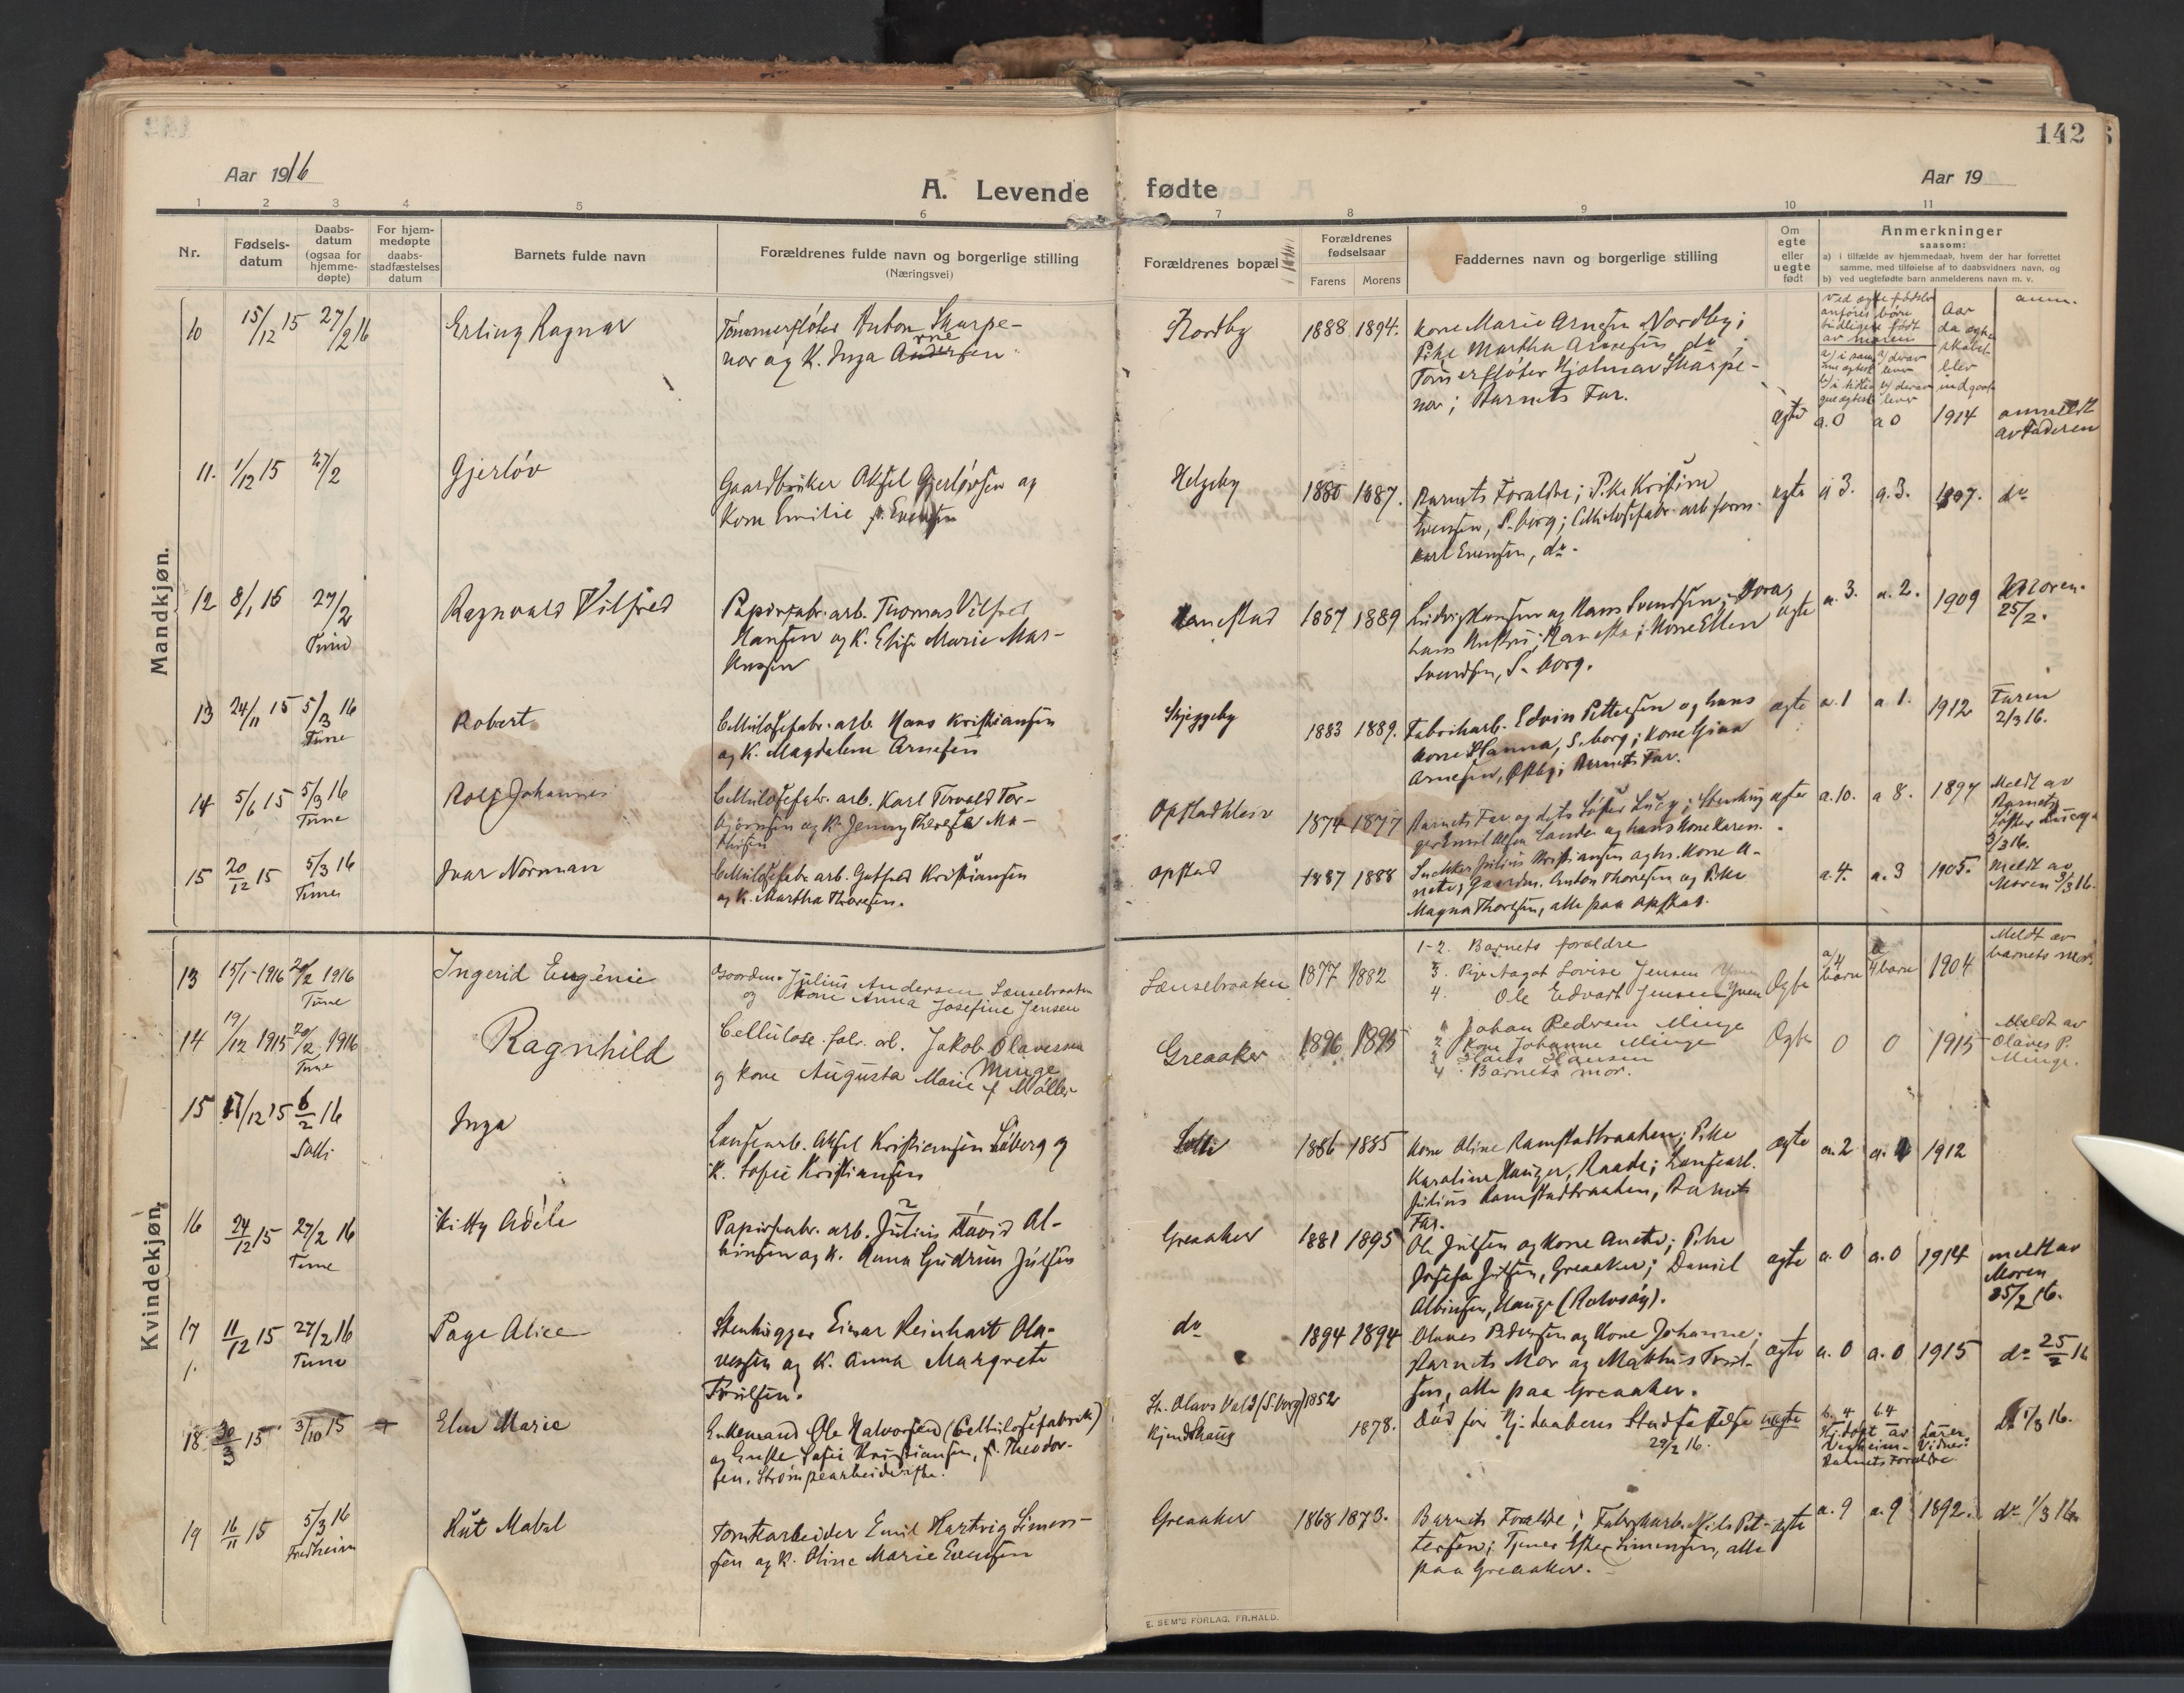 142
Aar 1916
A. Levende fødte
Aar 19
1 2 3 4 5 6 7 8 9 10 11
Nr.
Fødsels-
datum
Daabs-
datum
(ogsaa for
hjemme-
døpte)
For hjem-
medøpte
daabs-
stadfæstelses
datum
Barnets fulde navn
Forældrenes fulde navn og borgerlige stilling
(Næringsvei)
Forældrenes bopæl
Forældrenes
fødselsaar
Farens Morens
Faddernes navn og borgerlige stilling
Om
egte
eller
uegte
født
Anmerkninger
saasom:
a) i tilfælde av hjemmedaab, hvem der har forrettet
samme, med tilføielse af to daabsvidners navn, og
b) ved uegtefødte barn anmelderens navn m. v.
Mandkjøn.
ved egte fødsler
anføres børn
tidligere født
av moren
Aar
da egte
skabet
blev
indgaat
anm.
10 15/12 15 27/2 16
Erling Ragnar
Tømmerfløter Anton Skarpe-
nor og K. Inga Andersen
Nordby
1888 1894.
Kone Marie Arnesen Nordby;
Pike Martha Arnesen do;
Tømmerfløter Hjalmar Skarpe-
nor; Barnets Far.
egte a. 0 a 0 1914
anmeldt
av Faderen
11. 1/12 15 27/2
Gjerløv
Gaardbruker Aksel Gjerløvsen og
Kone Emilie f. Evensen
Helgeby
1880 1887.
Barnets Forældre; Pike Kristine
Evensen, S.borg; Cellulosefabr. arb. form.
Karl Evensen, do.
egte a 3. a. 3. 1907. do
12 8/1 16 27/2
Tune
Ragnvald Vilfred
Papirfabr. arb. Thomas Vilfred
Hansen og K. Elise Marie Mar-
kussen
Hanestad
1887 1889
Ludvig Hansen og Hans Svendsen; Kone Ellen
Svendsen, S.borg.
egte a. 3. a. 2. 1909
Moren.
25/2.
13 24/11 15 5/3 16
Tune
Robert
Cellulosefabr. arb. Hans Kristiansen
og K. Magdalene Arnesen
Skjeggeby
1883 1889.
Fabrikarb. Edvin Pettersen og hans
Kone Hanna, S.borg; Kone Gina
Arnesen, Østby; Barnets Far.
egte a. 1 a 1. 1912
Faren
2/3 16.
14 5/6 15 5/3 16
Tune
Rolf Johannes
Cellulosefabr. arb. Karl Torvald Tor-
bjørnsen og K. Jenny Therese Ma-
thisen
Opstadkleiv
1874 1877
Barnets Far og dets Søster Lucy; Stenhug
ger Emil Olsen Lande og hans Kone Karen.
egte a. 10. a 8. 1897
Meldt av
Barnets
Søster Lucy
3/3 16.
15 20/12 15 5/3 16
Tune
Ivar Norman
Cellulosefabr. arb. Gotfred Kristiansen
og K. Martha Thoresen.
Opstad
1887 1888
Snekker Julius Kristiansen og hs. Kone A-
nete; Gaardm. Anton Thoresen og Pike
Magna Thoresen, alle paa Opstad.
a. 4. a. 3 1905.
Meldt av
Moren 3/3 16.
Kvindekjøn.
13 15/1-1916 20/2 1916
Tune
Ingerid Eugénie
Gaardm. Julius Andersen Lænsebraaten
og kone Anna Josefine Jensen
Lænsebraaten
1877 1882
1-2. Barnets foraldre
3. Pige Aagot Lovise Jensen Yven
4. Ole Edvart Jensen Yven
Egte
a/4
barn
a
4 barn
1904
Meldt av
barnets mor.
14 19/12 1915 20/2 1916
Tune
Ragnhild
Cellulose. fabr. arb. Jakob Olavessen
Minge
og kone Augusta Marie f Møller
Greaaker
1896 1895
1 Johan Pedersen Minge
2 Kone Johanne Minge
3 Hans Hansen
4. Barnets mor.
Egte 0 0 1915
Meldt av
Olaves P.
Minge.
15 17/12 15 6/2 16
Solli
Inga
Lænsearb. Aksel Kristiansen Løberg og
K. Sofie Kristiansen
Solli
1886 1885
Kone Oline Ramstadbraaten; Pike
Karoline Hauger, Raade; Lænsearb.
Julius Ramstadbraaten, Barnets
Far.
egte a. 2 a. 1 1912
16 24/12 15 27/2 16
Tune
Kitty Adéle
Papirfabr. arb. Julius David Al-
binsen og K. Anna Gudrun Julsen
Greaaker
1881 1895
Ole Julsen og Kone Anette; Pike
Josefa Julsen, Greaaker; Daniel
Albinsen, Hauge (Rolvsøy).
egte a. 0 a. 0 1914
meldt av
Moren
25/2 16.
17 11/12 15 27/2 16
Tune
Page Alice
Stenhugger Einar Reinhart Ola-
vessen og K. Anna Margrete
Truls​en.
do
1894 1894
Olaves Pedersen og Kone Johanne;
Barnets Mor og Matthis Truls-
sen, alle paa Greaaker.
egte a. 0 a. 0 1915 do 25/2 16
18 30/3 15 3/10 15
Elen Marie
Enkemand Ole Halvorsen (Cellulosefabrik)
og Enke Sofie Kristiansen, f. Theodor-
sen. Strømpearbeiderske.
St. Olavs Vold (S.borg) 1852
Kjendshaug
1878.
Død før Hj. daabens Stadfæstelse
29/2 16.
uegte
b. 4 b. 4
Hj. døbt av Lærer
Vegheim - Vidner:
Barnets Forældre
do 1/3 16.
19 16/11 15 5/3 16
Fredheim
Rut Mabel
Tomtearbeider Emil Hartvig Simon-
sen og K. Oline Marie Evensen
Greaaker
1868 1873.
Barnets Forældre; Fabrikarb. Nils Pet-
tersen; Tjener Ester Simensen, alle
paa Greaaker.
egte a. 9 a. 9 1892. do 1/3 16.
E. SEM'S FORLAG, FR.HALD.